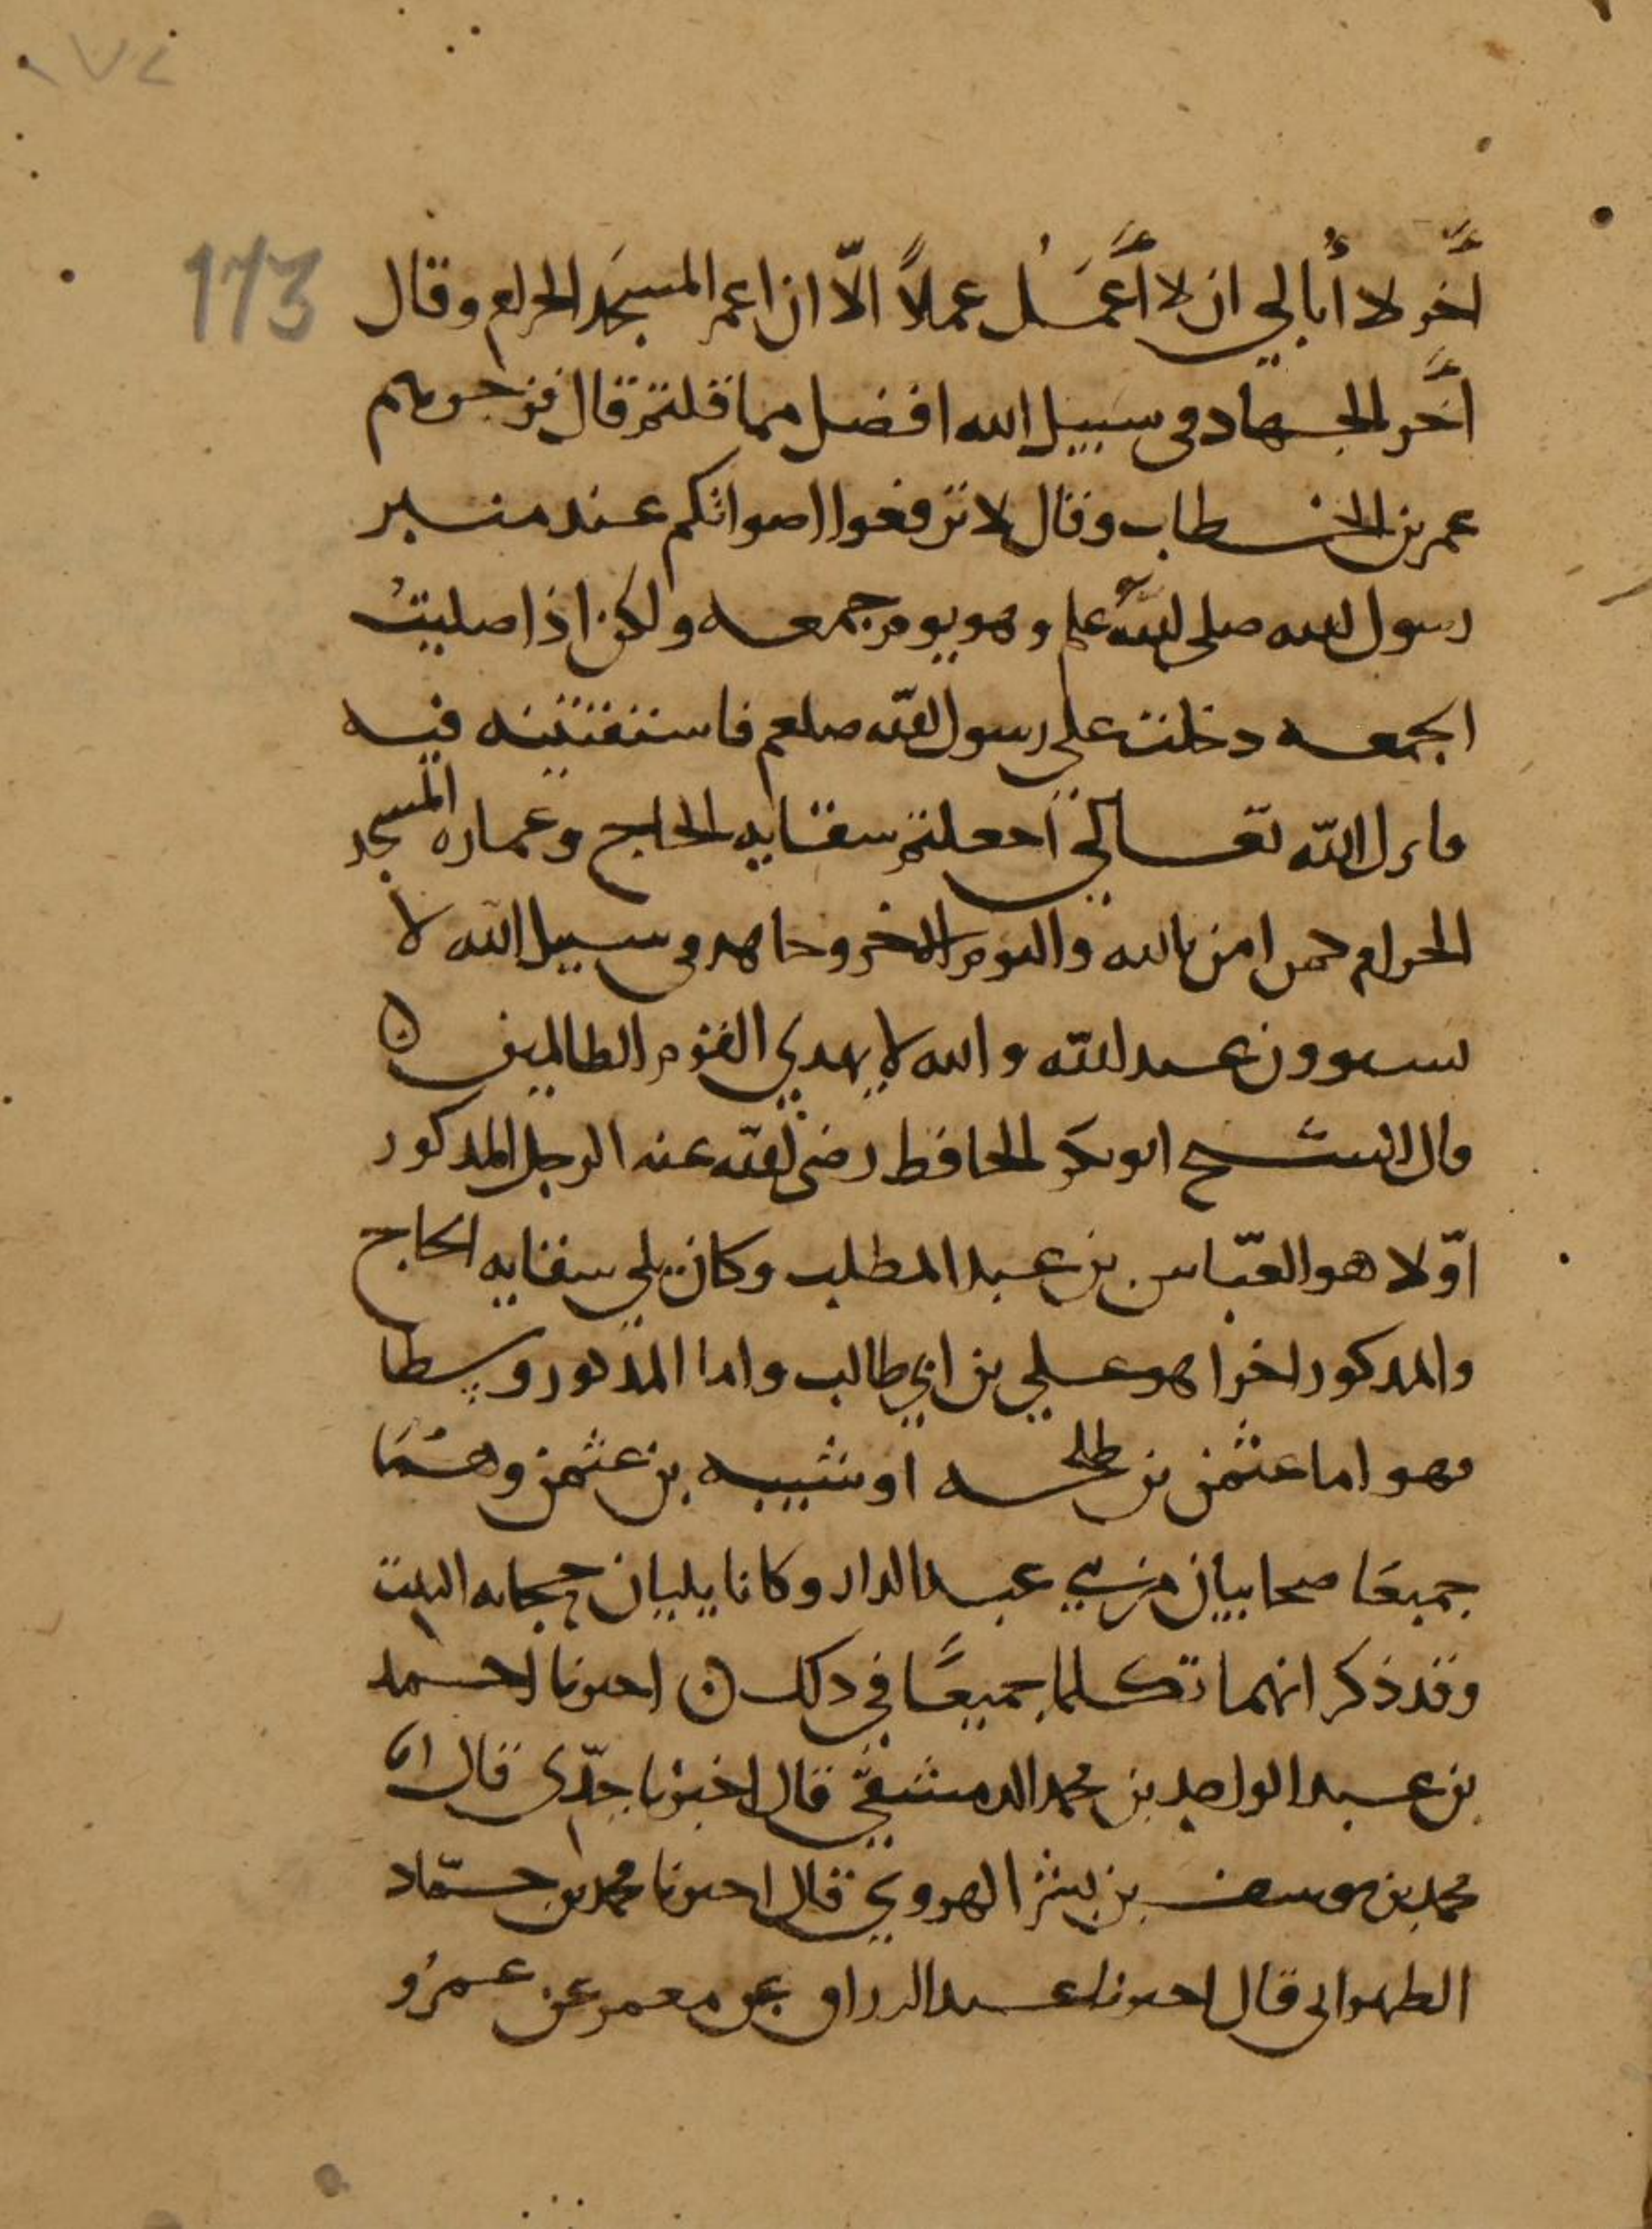 173
آخر لا أبالي ان لا أعمل عملاً الّا ان اعمر المسجد الحرام وقال
آخر الجهاد في سبيل الله افضل مما قلتم قال فزجرهم
عمر بن الخطاب وقال لا ترفعوا اصواتكم عند منبر
رسول الله صلى الله علم وهو يوم جمعه ولكن اذا صليتُ
الجمعه دخلت على رسول الله صلعم فاستفتيته فيه
فانزل الله تعالى أجعلتم سقايه الحاج وعماره المسجد
الحرام كمن امن بالله واليوم الاخر وجاهد في سبيل الله لا
يستوون عند الله والله لا يهدي القوم الظالمين ن
قال الشيخ ابو بكر الحافظ رضي الله عنه الرجل المذكور
اوّلا هو العبّاس بن عبد المطلب وكان يلي سقايه الحاج
والمذكور اخرا هو علي بن ابي طالب واما المذكور وسطا
فهو اما عثمن بن طلحه او شيبه بن عثمن وهما
جميعا صحابيان من بني عبد الدار وكانا يليان حجابه البيت
وقد ذكر انهما تكلما جميعًا في ذلك ن اخبرنا احمد
بن عبد الواحد بن محمد الدمشقي قال اخبرنا جدّى قال انا
محمد بن يوسف بن بشر الهروي قال اخبرنا محمد بن حمّاد
الطهراني قال اخبرنا عبد الرزاق عن معمر عن عمرو